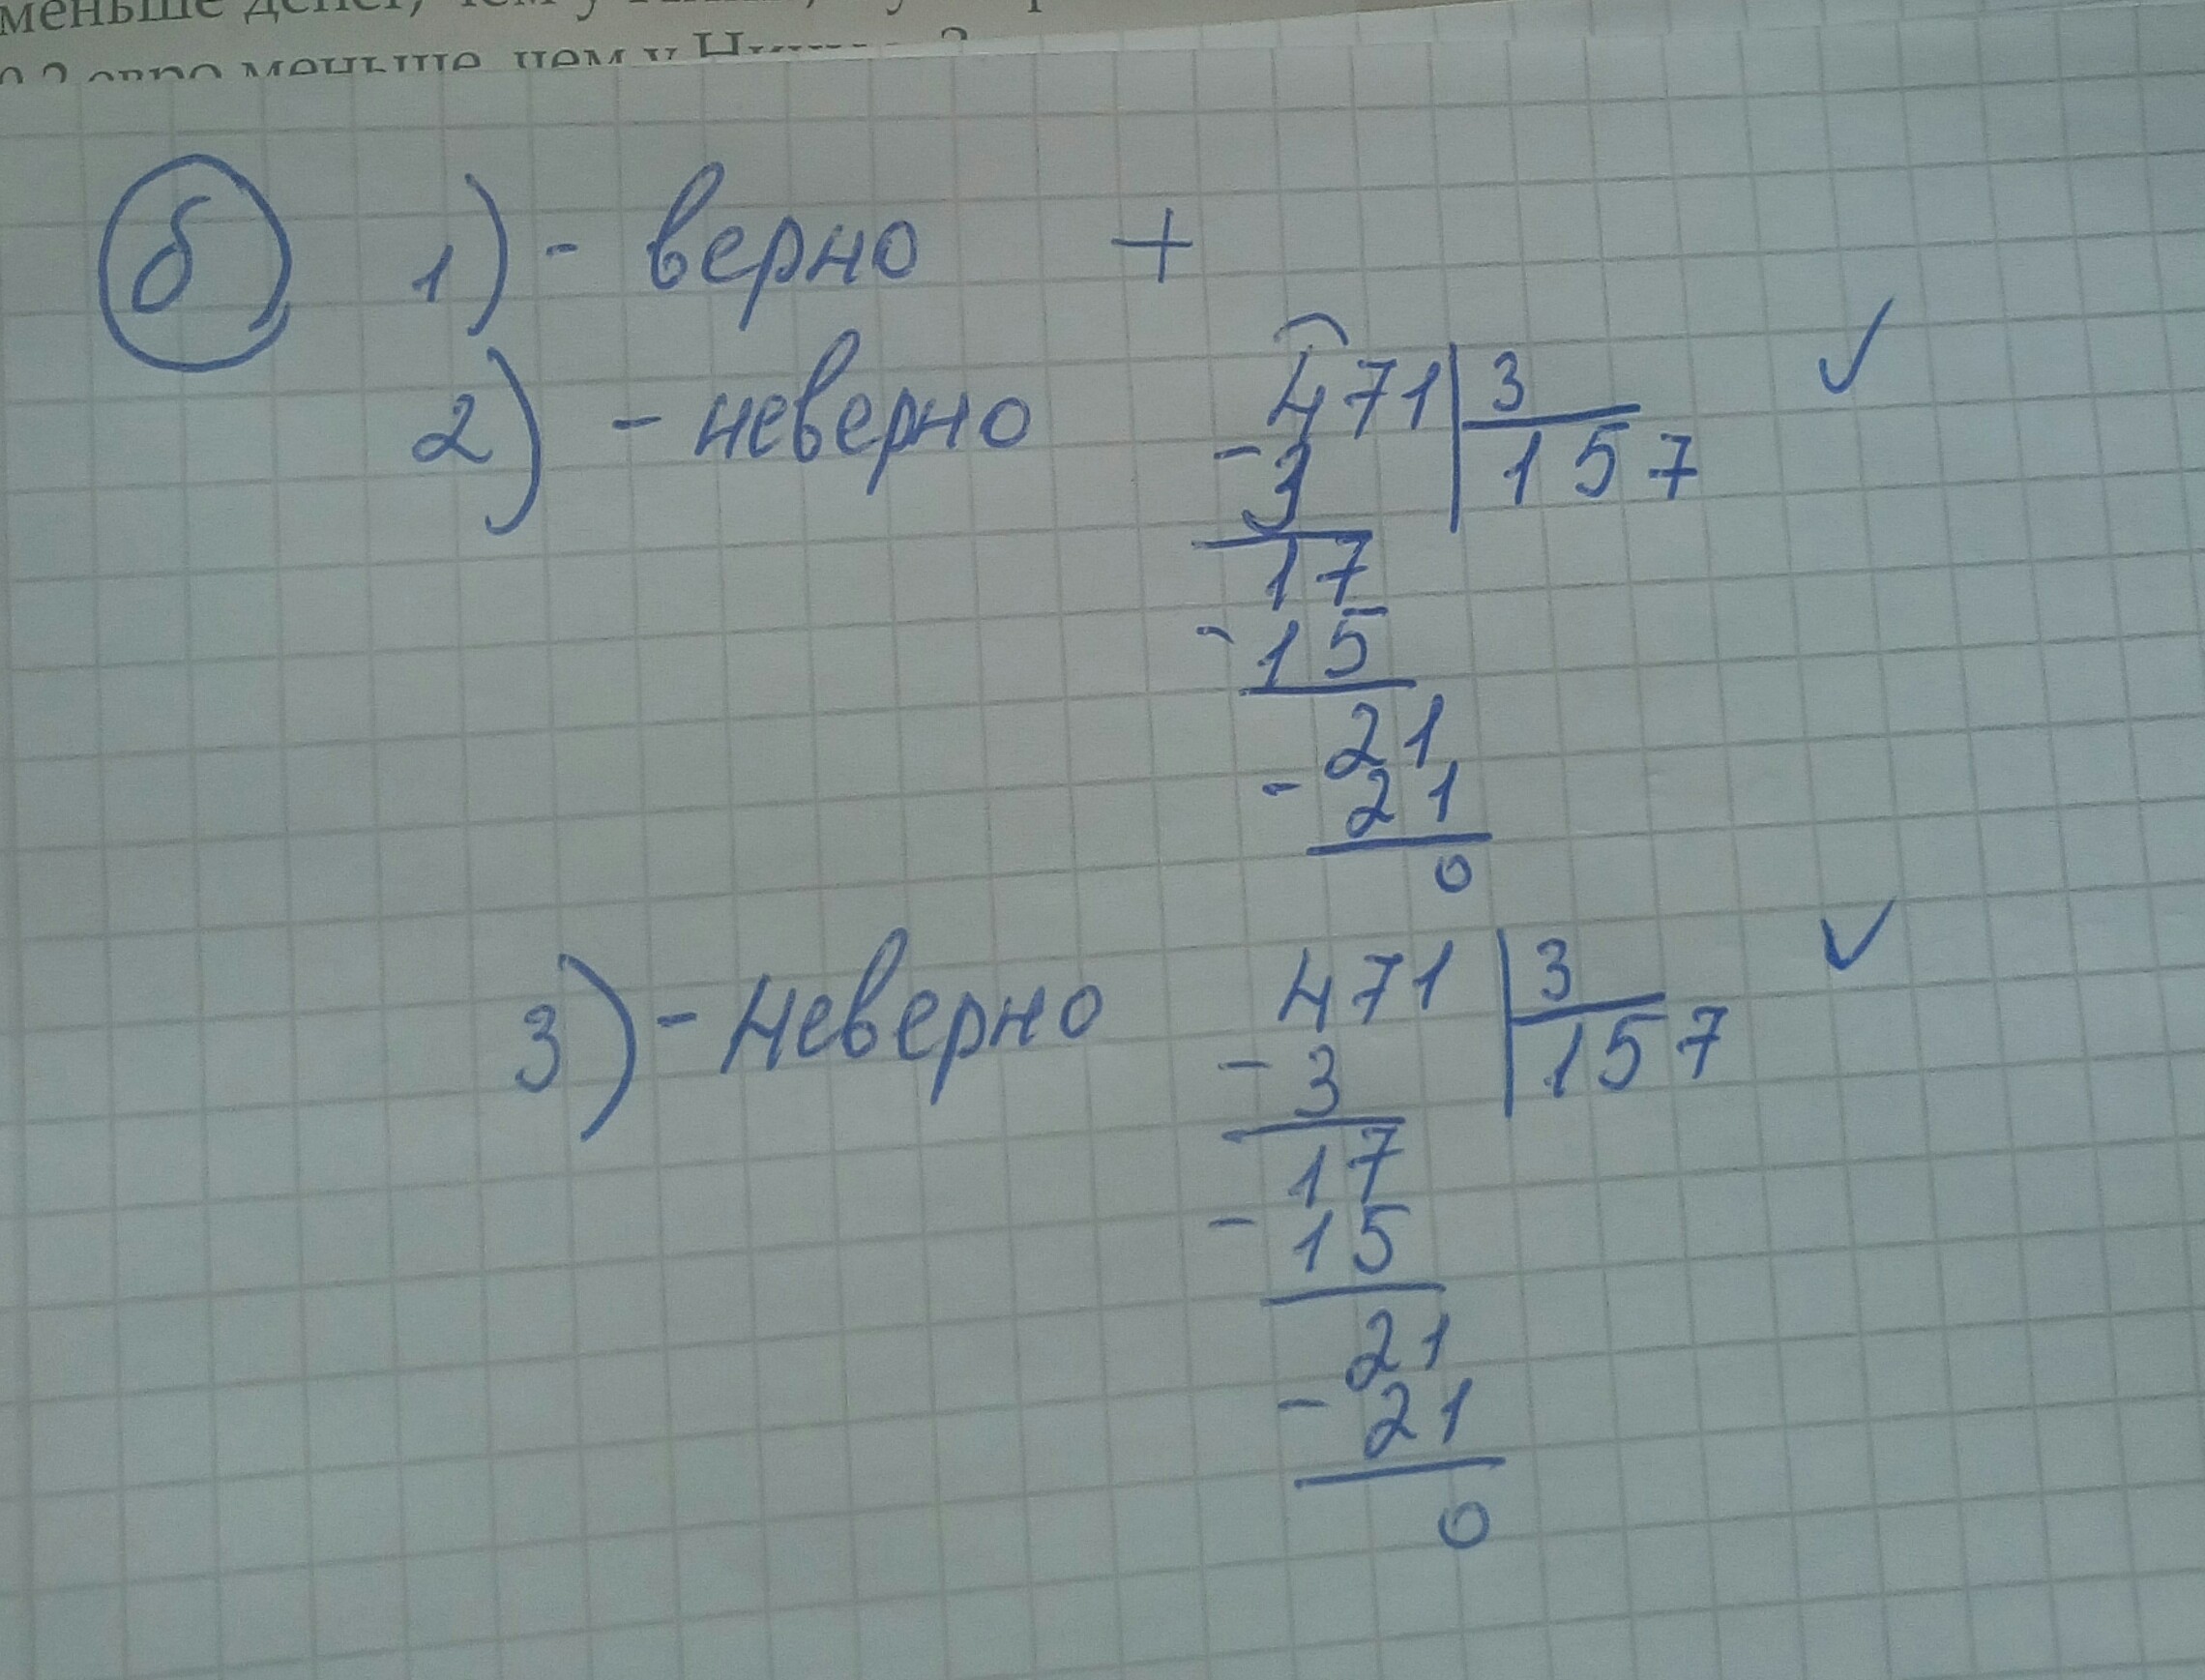 меньше денег, чем у
евро меньше, чем у
б 1) - верно +
2) - неверно 471 | 3 ✓
- 3 157
17
- 15
21
- 21
0
3) - неверно 471 | 3 ✓
- 3 157
17
- 15
21
- 21
0